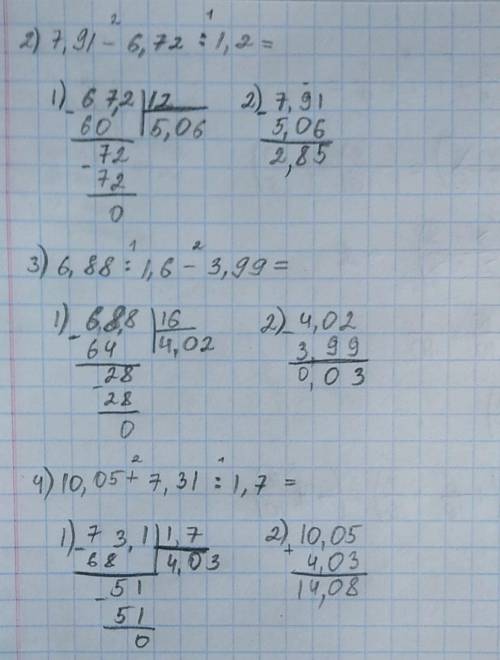 2 1
2) 7,91 - 6,72 : 1,2 =
1) - 67,2 | 12 2) - 7,91
60 | 5,06 5,06
- 72 2,85
72
0
1 2
3) 6,88 : 1,6 - 3,99 =
1) - 68,8 | 16 2) - 4,02
64 | 4,02 3,99
- 28 0,03
28
0
2 1
4) 10,05 + 7,31 : 1,7 =
1) - 73,1 | 1,7 2) + 10,05
68 | 4,03 4,03
- 51 14,08
51
0